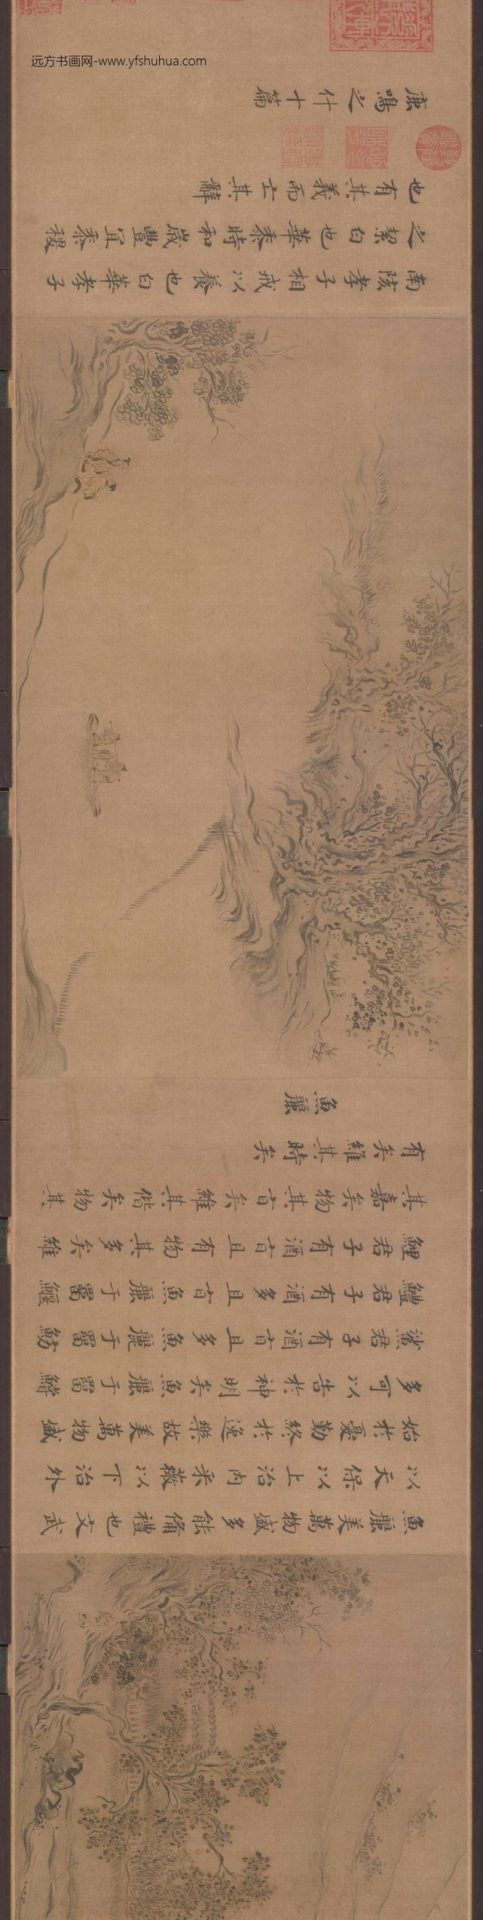 魚麗美萬物盛多能備禮也文武
以天保以上治内采薇以下治外
始於憂勤終於逸樂故美萬物盛
多可以告於神明矣魚麗于罶鱨
鯊君子有酒旨且多魚麗于罶魴
鱧君子有酒多且旨魚麗于罶鰋
鯉君子有酒旨且有物其多矣維
其嘉矣物其旨矣維其偕矣物其
有矣維其時矣
魚麗
南陔孝子相戒以養也白華孝子
之絜白也華黍時和歲豐宜黍稷
也有其義而亡其辭
鹿鳴之什十篇
远方书画网-www.yfshuhua.com